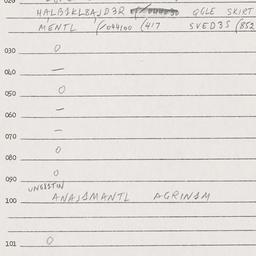 HALBJKLBAJD3R QGLE SKIRT
MENTL (/044100 (417 SVED3S (852
030 0
040 —
050 0
060 —
070 —
080 0
090 0
ANAJSMANTL AGRINSM
100
101 0